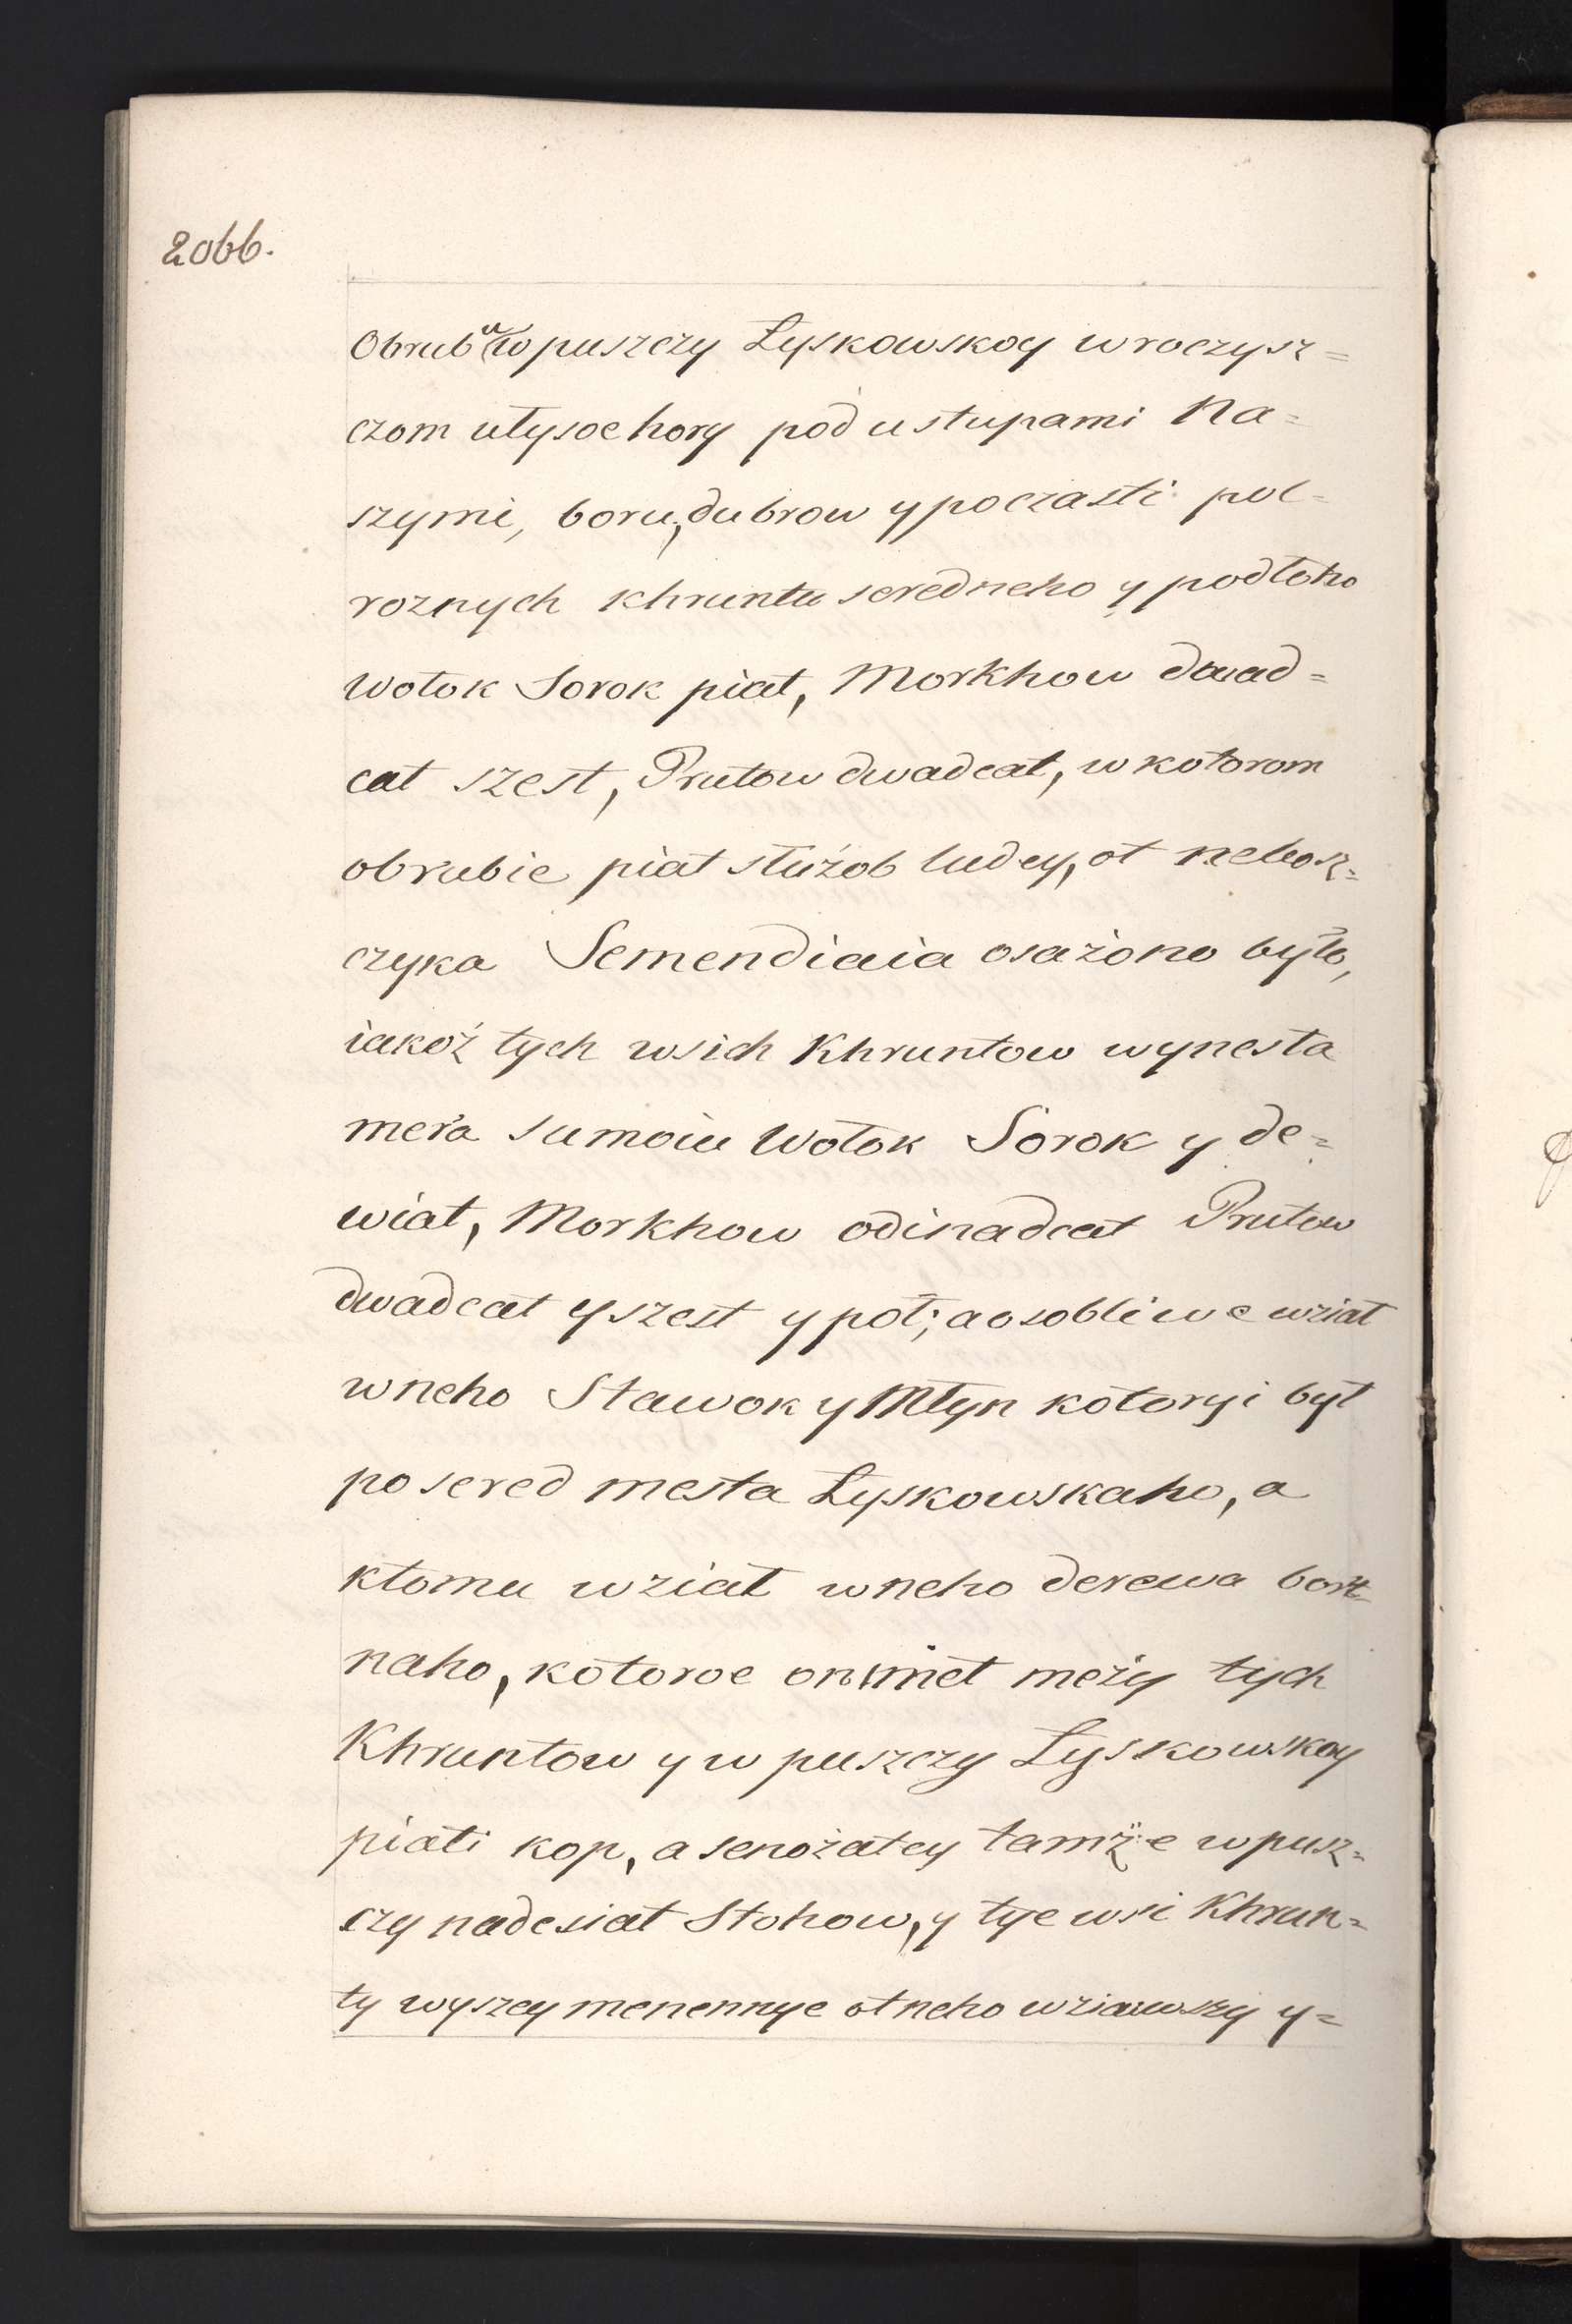 2066.
Obrub u w puszczy Łyskowskoy wroczysz=
czom ułysoe hory pod ustupami Na=
szymi, boru, dubrow y poczasti pol=
roznych khruntu seredneho y podłoho
Wołok Sorok piat, Morkhow dwad=
cat szest, Prutow dwadcat, w kotorom
obrubie piat służob ludey, ot nebosz=
czyka Semendiaia osażono było,
iakoż tych wsich Khruntow wynesła
mera sumoiu Wołok Sorok y de=
wiat, Morkhow odinadcat Prutow
dwadcat y szest y poł; a osobliwe wziat
wneho Stawok y Młyn kotoryi był
posered mesta Łyskowskaho, a
ktomu wziat wneho derewa bort=
naho, kotoroe on imeł meży tych
Khruntow y w puszczy Łyskowskoy
piati kop, a senożatey tamże w pusz=
czy nadesiat Stohow, y tye wsi Khrun=
ty wyszey menennye ot neho wziawszy y=